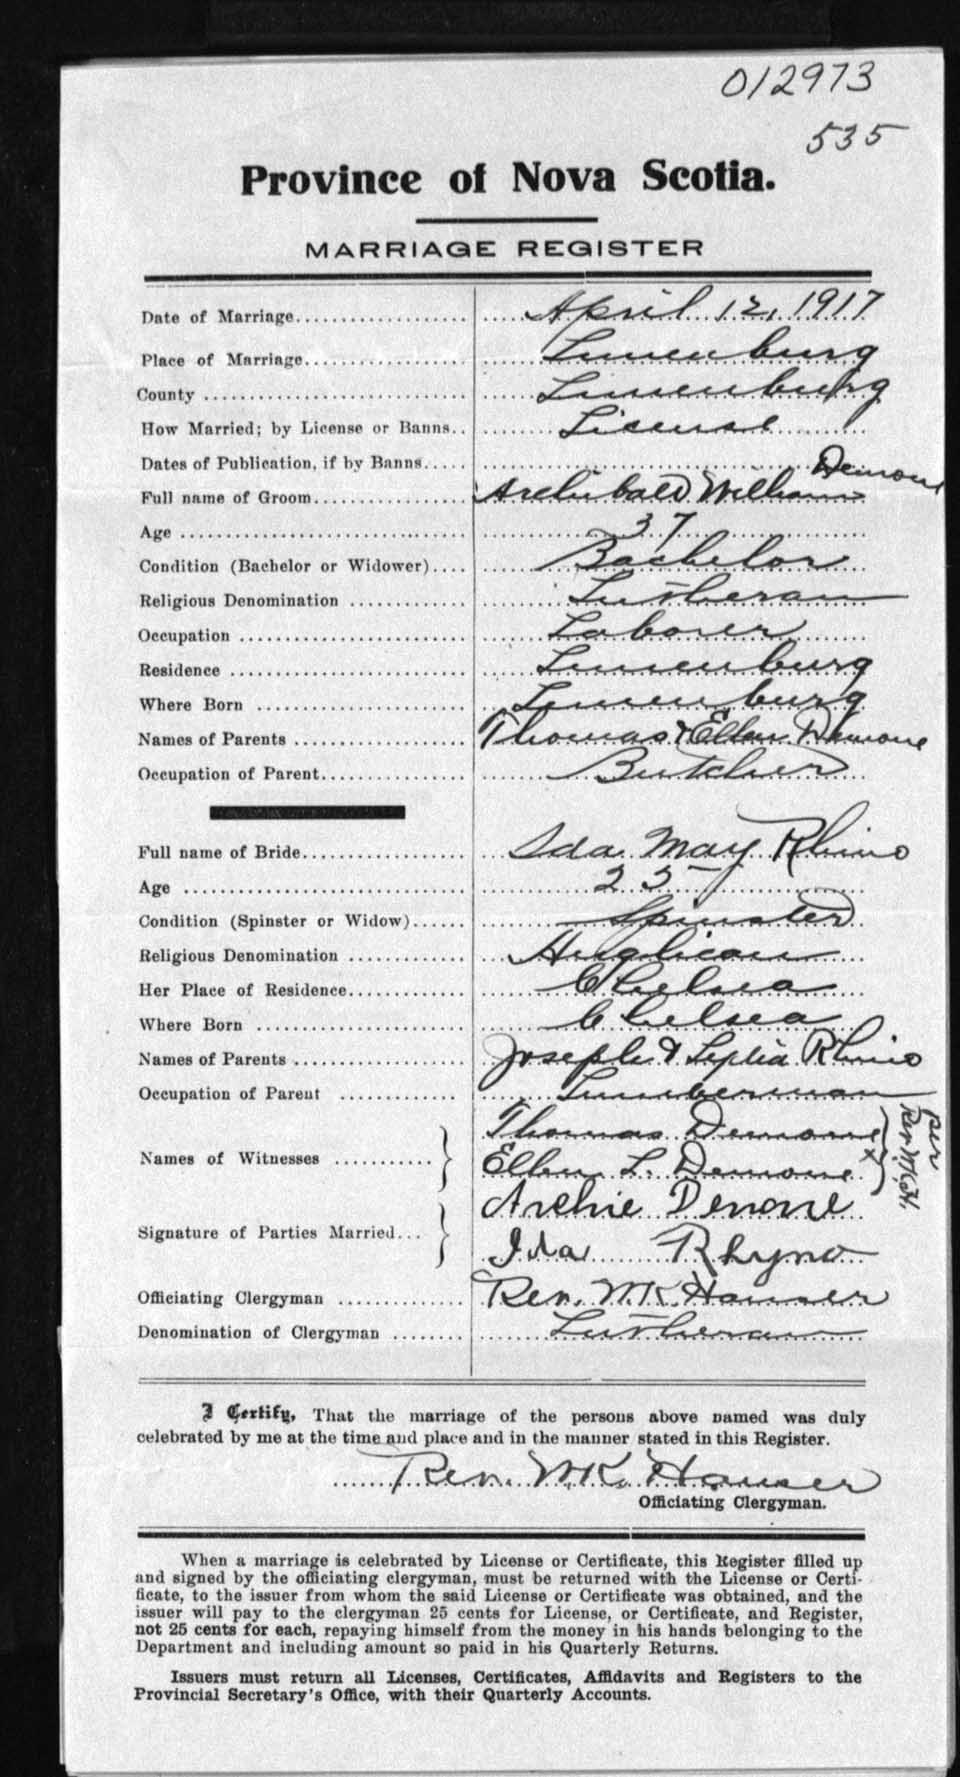 012973
535
Province of Nova Scotia.
MARRIAGE REGISTER
Date of Marriage April 12, 1917
Place of Marriage Lunenburg
County Lunenburg
How Married; by License or Banns License
Dates of Publication, if by Banns
Full name of Groom Archibald William Demone
Age 37
Condition (Bachelor or Widower) Bachelor
Religious Denomination Lutheran
Occupation Laborer
Residence Lunenburg
Where Born Lunenburg
Names of Parents Thomas & Ellen Demone
Occupation of Parent Butcher
Full name of Bride Ida May Rhino
Age 25
Condition (Spinster or Widow) Spinster
Religious Denomination Anglican
Her Place of Residence Chelsea
Where Born Chelsea
Names of Parents Joseph & Rhino
Occupation of Parent Lumberman
Names of Witnesses } Thomas Demone
Ellen L. Demone x } per Rev. M.K.H.
Signature of Parties Married } Archie Demone
Ida Rhyno
Officiating Clergyman Rev. W.K. Hauser
Denomination of Clergyman Lutheran
I Certify, That the marriage of the persons above named was duly
celebrated by me at the time and place and in the manner stated in this Register.
Rev. W.K. Hauser
Officiating Clergyman.
When a marriage is celebrated by License or Certificate, this Register filled up
and signed by the officiating clergyman, must be returned with the License or Certi-
ficate, to the issuer from whom the said License or Certificate was obtained, and the
issuer will pay to the clergyman 25 cents for License, or Certificate, and Register,
not 25 cents for each, repaying himself from the money in his hands belonging to the
Department and including amount so paid in his Quarterly Returns.
Issuers must return all Licenses, Certificates, Affidavits and Registers to the
Provincial Secretary's Office, with their Quarterly Accounts.